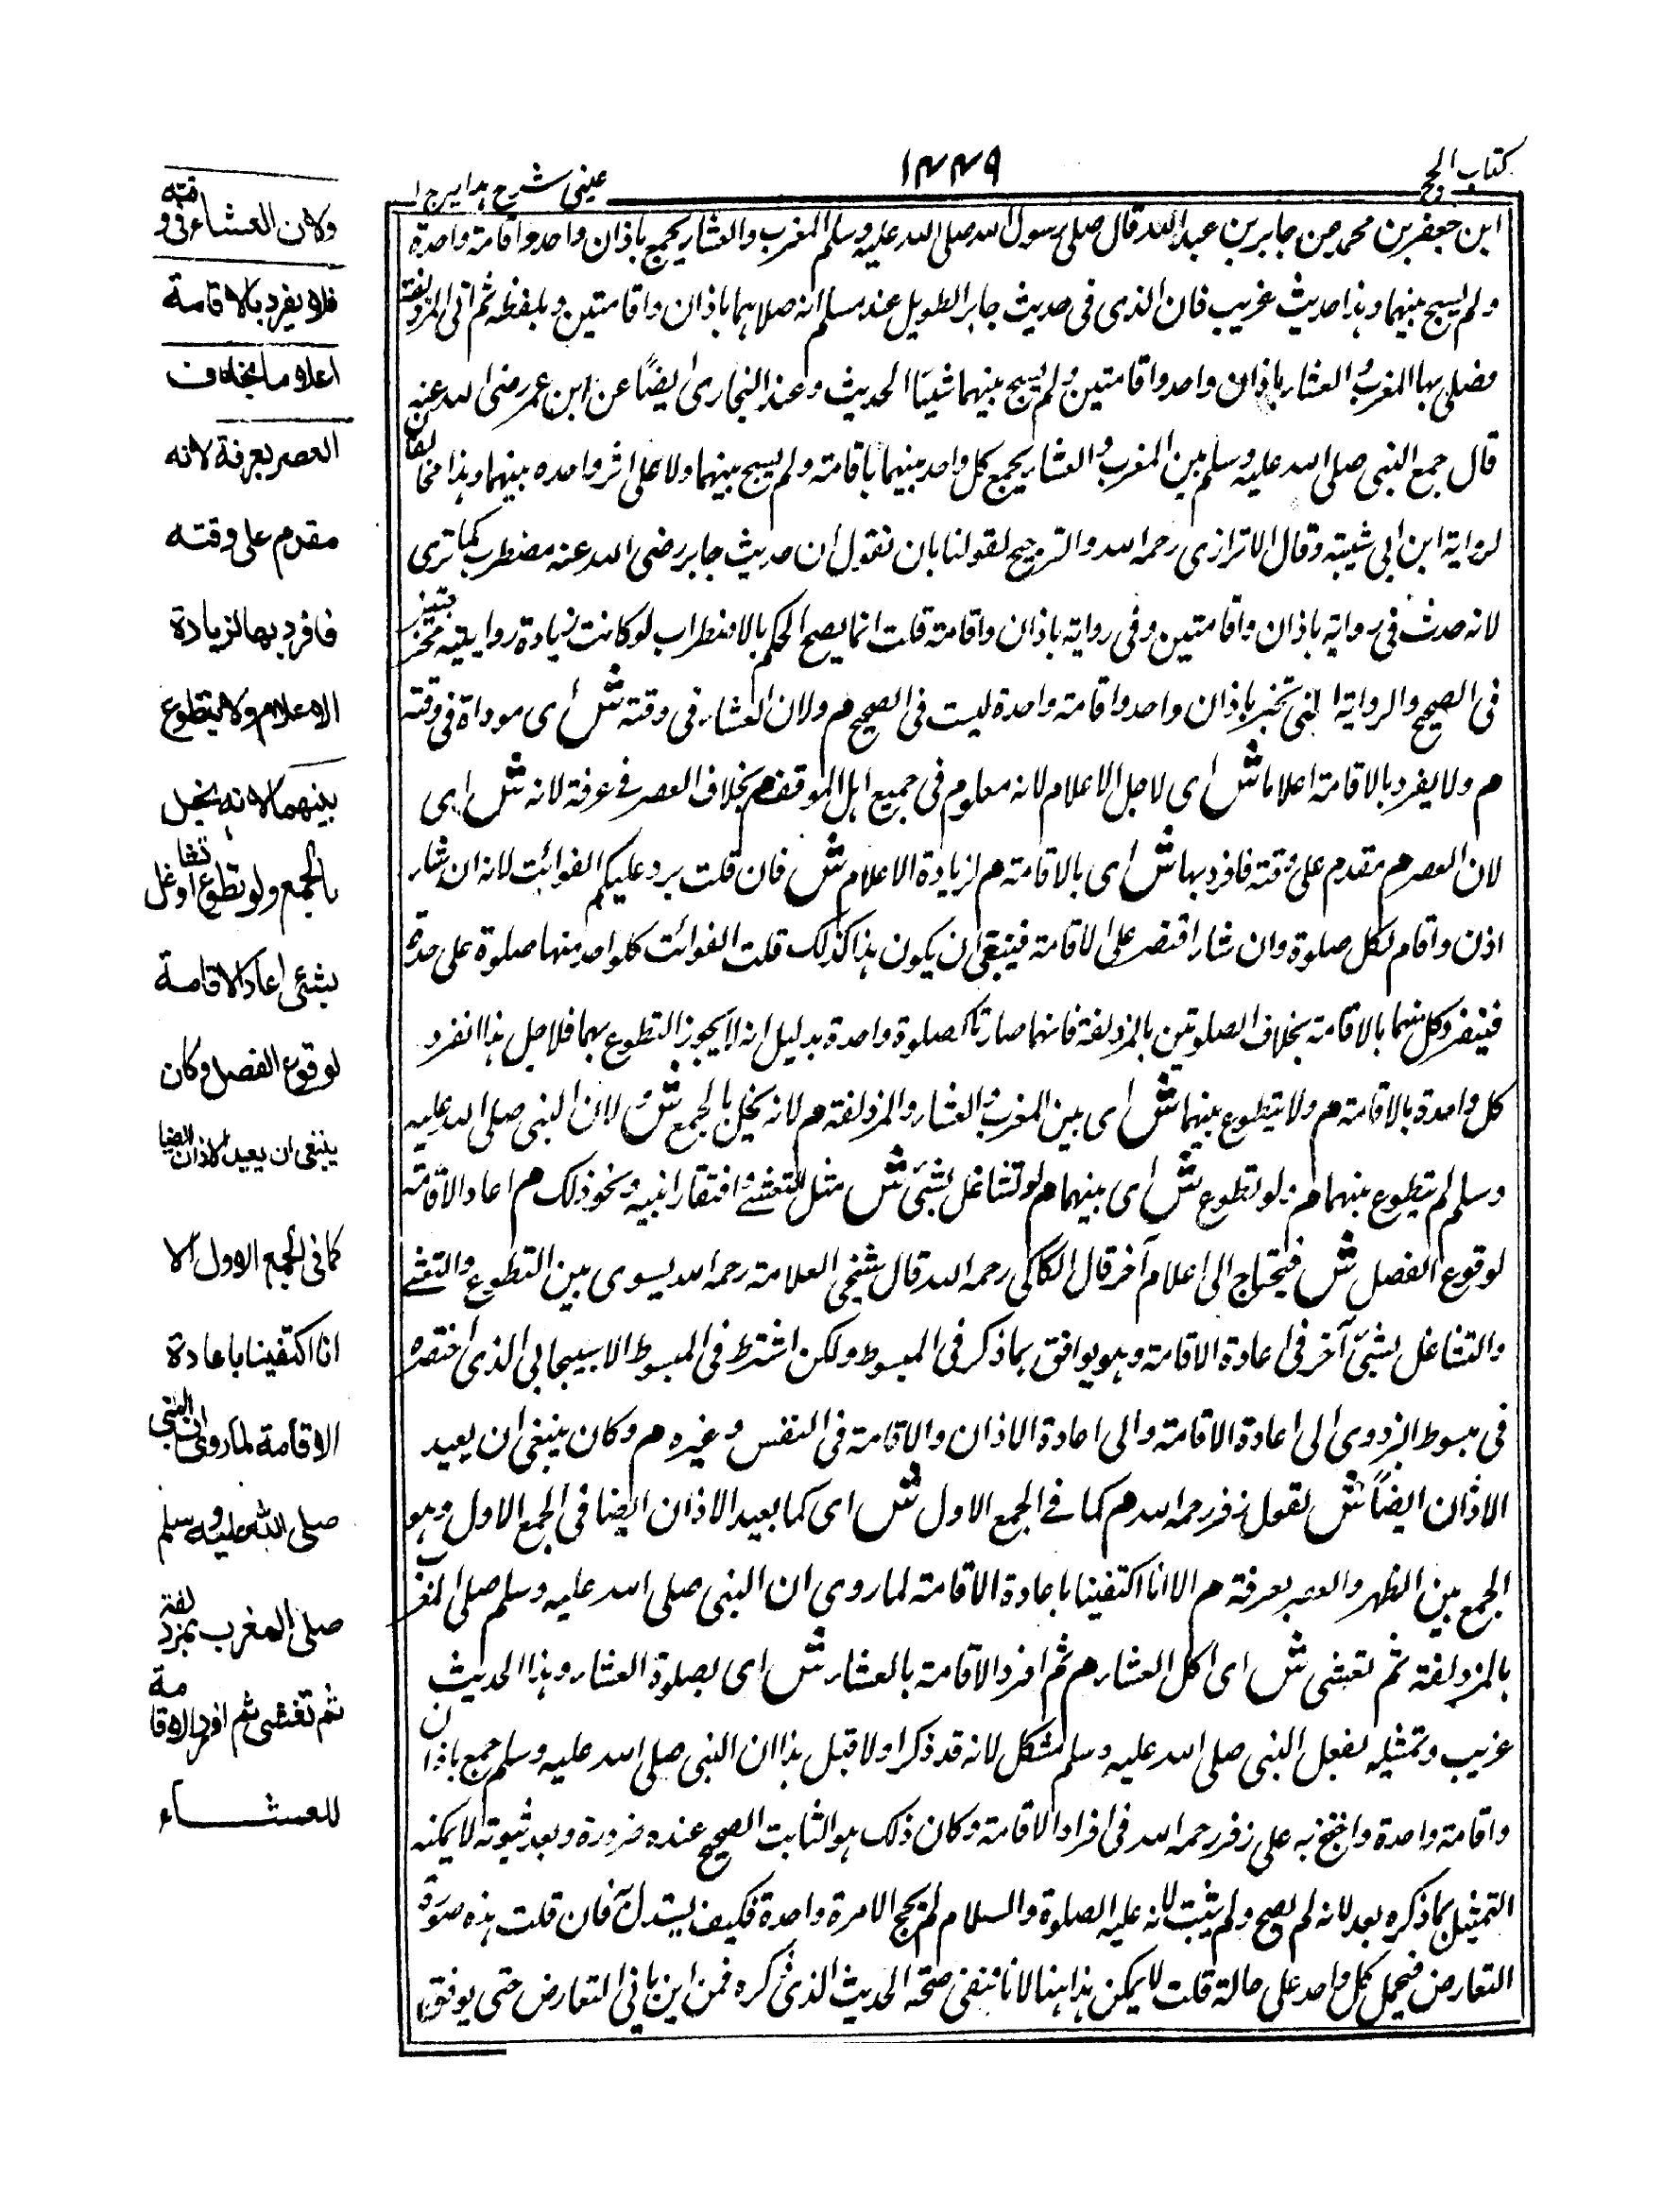 كتاب الحج
١٤٤٩
عينى شرح هدايه ج ا
ابن جعفر بن محمد عن جابر بن عبد الله قال صلى رسول الله صلى الله عليه وسلم المغرب والعشاء يجمع باذان واحد واقامة واحدة
ولم يسبح بينهما وهذا حديث غريب فان الذى فى حديث جابر الطويل عند مسلم انه صلاهما باذان واقامتين وبلفظه ثم اتى المزدلفة
فصلى بها المغرب والعشاء باذان واحد واقامتين ولم يسبح بينهما شيئا الحديث وعند البخارى ايضاً عن ابن عمر رضى الله عنه
قال جمع النبى صلى الله عليه وسلم بين المغرب والعشاء يجمع كل واحد منهما باقامة ولم يسبح بينهما ولا على اثر واحده منهما وهذا مخالف
لرواية ابن ابى شيبة وقال الاترازى رحمه الله والترجيح لقولنا بان نقول ان حديث جابر رضى الله عنه مضطرب كما ترى
لانه حدث فى رواية باذان واقامتين وفى رواية باذان واقامة قلت انما يصح الحكم بالاضطراب لو كانت زيادة
فى الصحيح والرواية التى تخبر باذان واحد واقامة واحدة ليست فى الصحيح م ولان العشاء فى وقته ش اى موداة فى وقته
م ولا يفرد بالاقامة اعلاما ش اى لاجل الاعلام لانه معلوم فى جميع اهل الموقف م بخلاف العصر فى عرفة لانه ش اى
لان العصر م مقدم على وقته فافرد بها ش اى بالاقامة م لزيادة الاعلام ش فان قلت يرد عليكم الفوائت لانه ان شاء
اذن واقام لكل صلوة وان شاء اقتصر على الاقامة فينبغى ان يكون هذا كذلك قلت الفوائت كل واحد منها صلوة على حدة
فينفرد كل منهما بالاقامة بخلاف الصلوتين بالمزدلفة فانهما صارتا كصلوة واحدة بدليل انه لا يجوز التطوع بهما فلاجل هذا انفرد
كل واحدة بالاقامة م ولا يتطوع بينهما ش اى بين المغرب والعشاء والمزدلفة م لانه يخل بالجمع ش ولان النبى صلى الله عليه
وسلم لم يتطوع بينهما م ولو تطوع ش اى بينهما م او تشاغل بشئ ش مثل التعشے و ونحو ذلك م اعاد الاقامة
لوقوع الفصل ش فيحتاج الى اعلام آخر قال الكاكى رحمه الله قال شيخى العلامة رحمه الله يسوى بين التطوع والتعشے
والتشاغل بشئ آخر فى اعادة الاقامة وهو يوافق بما ذكر فى المبسوط ولكن اشترط فى المبسوط الاسبيجابى الذى اختصره
فى مبسوط البزدوى الى اعادة الاقامة والى اعادة الاذان والاقامة فى النفس وغيره م وكان ينبغى ان يعيد
الاذان ايضاً ش لقول زفر رحمه الله م كما فے الجمع الاول ش اى كما يعيد الاذان ايضا فى الجمع الاول وهو
الجمع بين الظهر والعصر بعرفة م الا انا اكتفينا باعادة الاقامة لما روى ان النبى صلى الله عليه وسلم صلى المغرب
بالمزدلفة ثم تعشى ش اى اكل العشاء م ثم افرد الاقامة بالعشاء ش اى بصلوة العشاء وهذا الحديث
غريب وتمثيله لفعل النبى صلى الله عليه وسلم مشكل لانه قد ذكر اولا قبل هذا ان النبى صلى الله عليه وسلم جمع باذان
واقامة واحدة واحتج به على زفر رحمه الله فى افراد الاقامة وكان ذلك هو الثابت الصحيح عنده ضرورة وبعد ثبوته لا يمكنه
التمثيل بما ذكره بعد لانه لم يصح ولم يثبت لانه عليه الصلوة والسلام لم يحج الا مرة واحدة فكيف يستدل به فان قلت هذه صورة
التعارض فيحمل كل واحد على حالة قلت لا يمكن هذا هنا لانا ننفى صحة الحديث الذى ذكره فمن اين ياتى التعارض حتى يوفق
ولان العشاء فى وقته
فلا يفرد بالاقامة
اعلاما بخلاف
العصر بعرفة لانه
مقدم على وقته
فافرد بها لزيادة
الاعلام ولا يتطوع
بينهما لانه يخل
بالجمع ولو تطوع او تشاغل
بشئى اعاد الاقامة
لوقوع الفصل وكان
ينبغى ان يعيد الاذان ايضا
كما فى الجمع الاول الا
انا اكتفينا باعادة
الاقامة لما روى ان النبى
صلى الله عليه وسلم
صلى المغرب بمزدلفة
ثم تعشى ثم افرد الاقامة
للعشاء